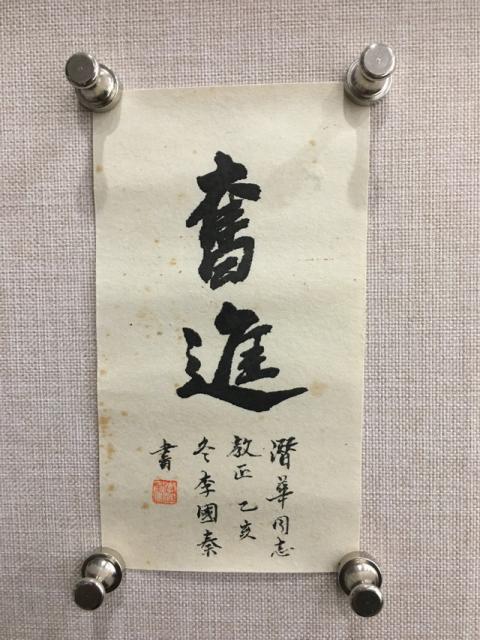 奮進
潛華同志
教正 乙亥
冬李國秦
書